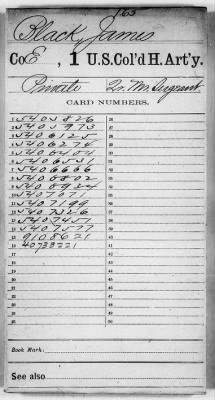 165
Black, James
Co. E, 1 U.S. Col'd H. Art'y.
Private Qr. M. Sergeant
CARD NUMBERS.
1 5405826 26
2 5405973 27
3 5406125 28
4 5406274 29
5 5406404 30
6 5406531 31
7 5406666 32
8 5406802 33
9 5406924 34
10 5407071 35
11 5407199 36
12 5407326 37
13 5407451 38
14 5407577 39
15 9108621 40
16 40733221 41
17 42
18 43
19 44
20 45
21 46
22 47
23 48
24 49
25 50
Book Mark:
See also